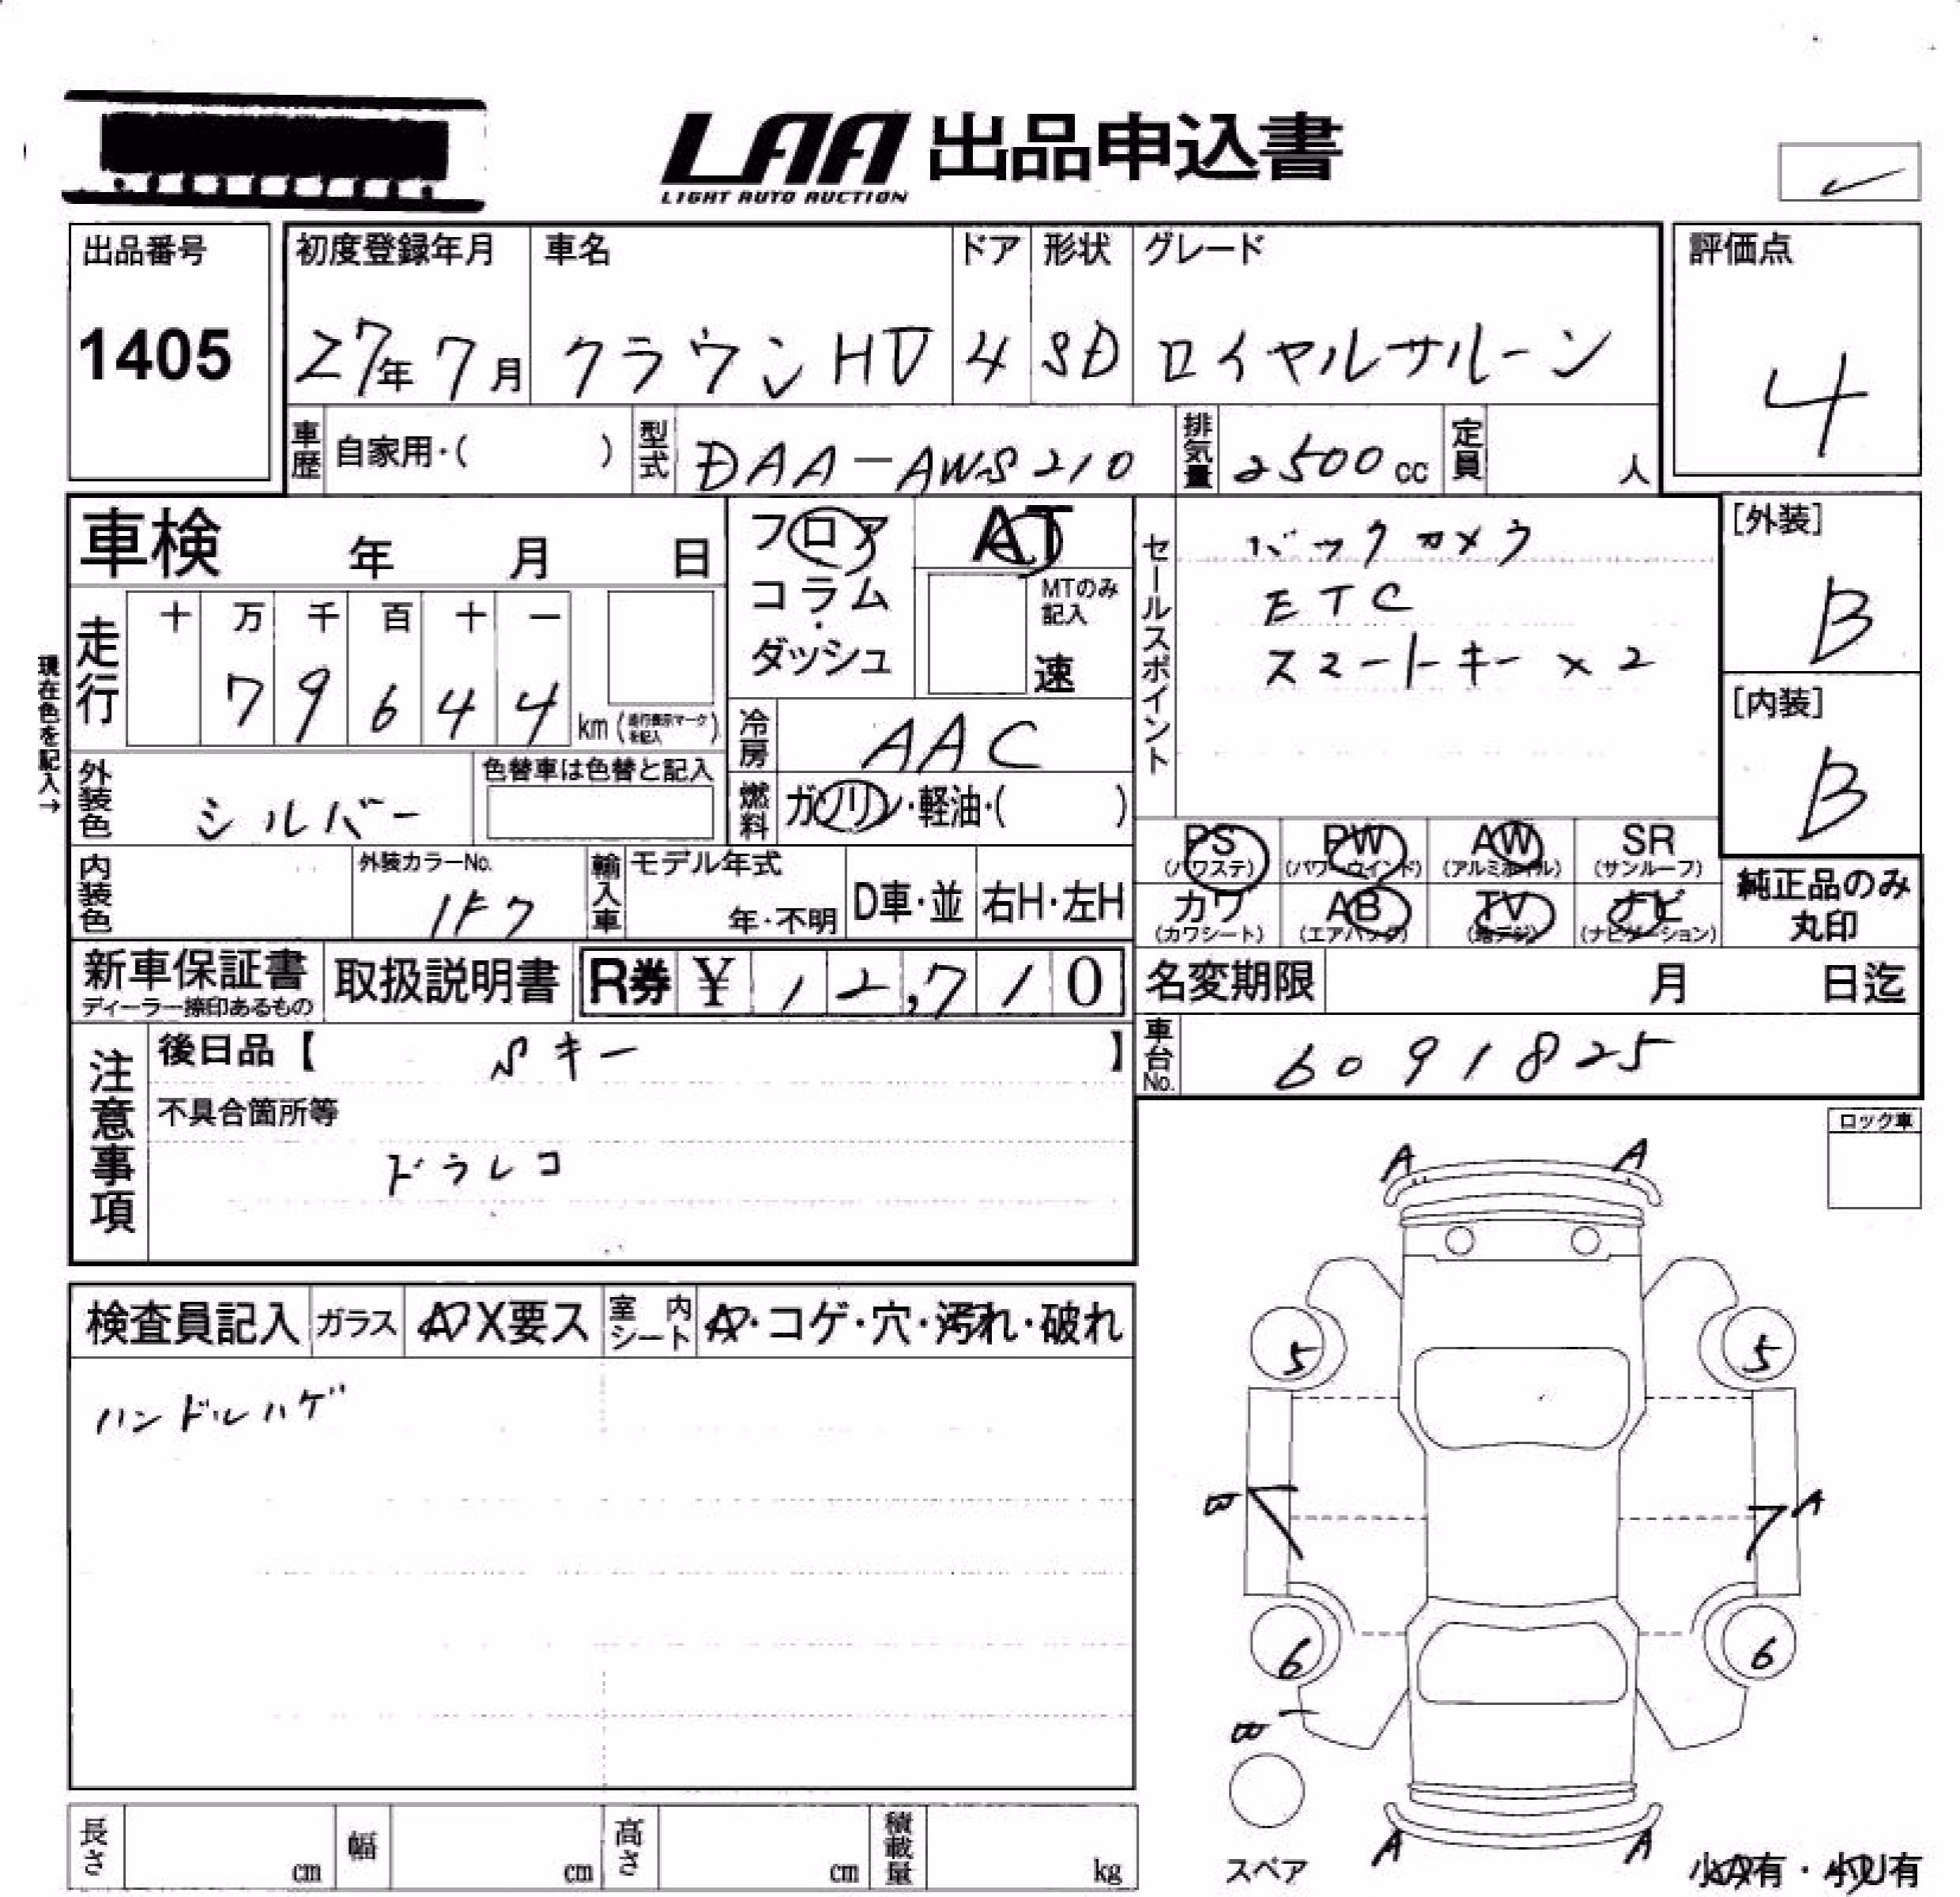 LAA 出品申込書
LIGHT AUTO AUCTION
出品番号
1405
初度登録年月
27年7月
車名
クラウンHV
ドア
4
形状
SD
グレード
ロイヤルサルーン
評価点
4
車歴 自家用・( )
型式 DAA-AWS210
排気量 2500cc
定員 人
車検 年 月 日
フロア
コラム
ダッシュ
AT
MTのみ記入
速
セールスポイント
バックカメラ
ETC
スマートキー×2
[外装]
B
[内装]
B
現在色を記入→
走行 十 万 千 百 十 一
79644
km(走行表示マークを記入)
冷房 AAC
燃料 ガソリン・軽油・( )
外装色 シルバー
色替車は色替と記入
内装色
外装カラーNo.
1F7
輸入車
モデル年式
年・不明
D車・並
右H・左H
PS (パワステ)
PW (パワーウインド)
AW (アルミホイル)
SR (サンルーフ)
カワ (カワシート)
AB (エアバッグ)
TV (地デジ)
ナビ (ナビゲーション)
純正品のみ丸印
新車保証書
ディーラー捺印あるもの
取扱説明書
R券 ¥ 12,710
名変期限 月 日迄
車台No. 6091825
注意事項
後日品【 Sキー 】
不具合箇所等
ドラレコ
ロック車
検査員記入
ガラス A X要ス
室内シート A・コゲ・穴・汚れ・破れ
ハンドルハゲ
A A
5 5
A
6 6
A A
スペア
小A有・小U有
長さ cm
幅 cm
高さ cm
積載量 kg